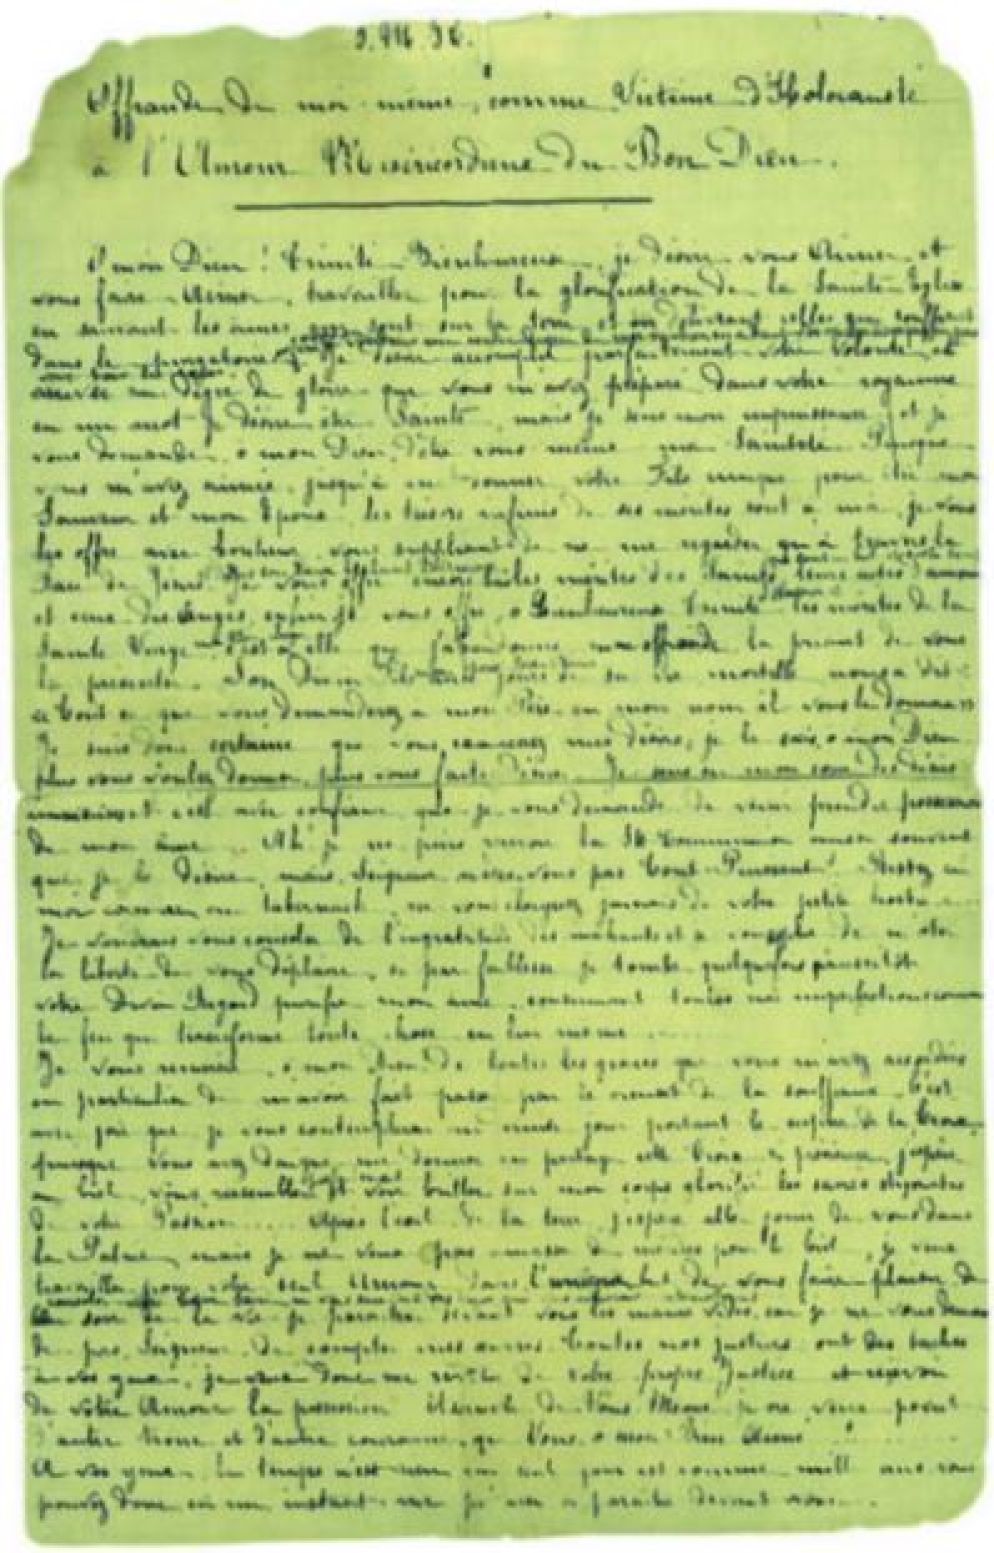 J. M. J. T.
Offrande de moi-même, comme Victime d'Holocauste
à l'Amour Miséricordieux du Bon Dieu.
O mon Dieu ! Trinité Bienheureuse, je désire vous Aimer et
vous faire Aimer, travailler pour la glorification de la Sainte Eglise
en sauvant les âmes qui sont sur la terre et en délivrant celles qui souffrent
dans le purgatoire. Je désire accomplir parfaitement votre volonté et
arriver au degré de gloire que vous m'avez préparé dans votre royaume
en un mot je désire être Sainte, mais je sens mon impuissance et je
vous demande, ô mon Dieu, d'être vous-même ma Sainteté. Puisque
vous m'avez aimée jusqu'à me donner votre Fils unique pour être mon
Sauveur et mon Epoux, les trésors infinis de ses mérites sont à moi, je vous
les offre avec bonheur, vous suppliant de ne me regarder qu'à travers la
Face de Jésus. Je vous offre encore tous les mérites des Saints, leurs actes d'amour
et ceux des Anges, enfin je vous offre, ô Bienheureuse Trinité les mérites de la
Sainte Vierge c'est à elle que j'abandonne mon offrande la priant de vous
la présenter. Son Divin Fils aux jours de sa vie mortelle nous a dit :
« Tout ce que vous demanderez à mon Père en mon nom il vous le donnera »
Je suis donc certaine que vous exaucerez mes désirs, je le sais, ô mon Dieu
plus vous voulez donner, plus vous faites désirer. Je sens en mon cœur des désirs
immenses et c'est avec confiance que je vous demande de venir prendre possession
de mon âme. Ah ! je ne puis recevoir la Ste Communion aussi souvent
que je le désire, mais, Seigneur n'êtes-vous pas Tout-Puissant ? Restez en
moi comme au tabernacle, ne vous éloignez jamais de votre petite hostie....
Je voudrais vous consoler de l'ingratitude des méchants et je vous supplie de m'ôter
la liberté de vous déplaire, si par faiblesse je tombe quelquefois qu'aussitôt
votre Divin Regard purifie mon âme, consumant toutes mes imperfections comme
le feu qui transforme toute chose en lui-même.....
Je vous remercie, ô mon Dieu de toutes les grâces que vous m'avez accordées
en particulier de m'avoir fait passer par le creuset de la souffrance. C'est
avec joie que je vous contemplerai au dernier jour portant le sceptre de la Croix,
puisque vous avez daigné me donner en partage cette Croix si précieuse, j'espère
au Ciel vous ressembler et voir briller sur mon corps glorifié les sacrés stigmates
de votre Passion.... Après l'exil de la terre, j'espère aller jouir de vous dans
la Patrie, mais je ne veux pas amasser de mérites pour le Ciel, je veux
travailler pour votre seul Amour, dans l'unique but de vous faire plaisir, de
Au soir de la vie je paraîtrai devant vous les mains vides, car je ne vous demande
de pas, Seigneur, de compter mes œuvres. Toutes nos justices ont des taches
à vos yeux, je veux donc me revêtir de votre propre Justice et recevoir
de votre Amour la possession éternelle de Vous-Même, je ne veux point
d'autre Trône et d'autre couronne, que Vous, ô mon Bien-Aimé !.......
A vos yeux le temps n'est rien un seul jour est comme mille ans, vous
pouvez donc en un instant me préparer à paraître devant vous....